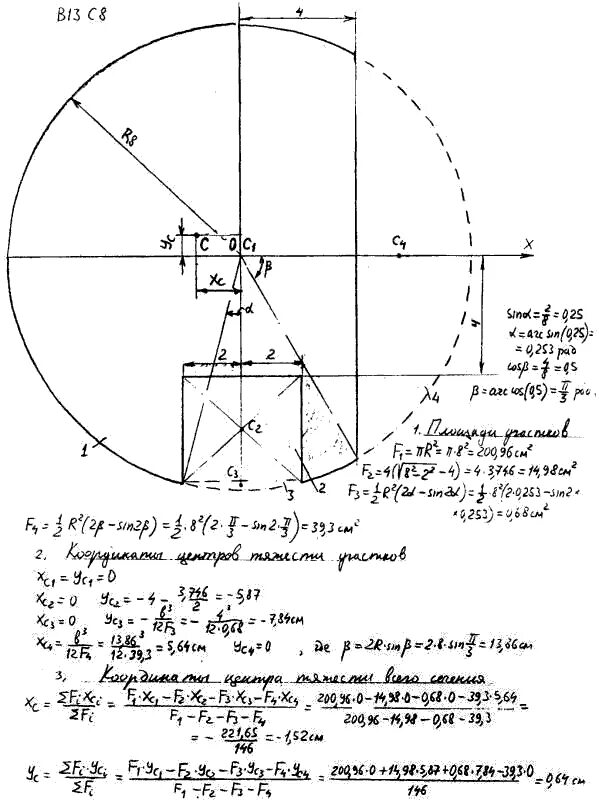 В13 С8
4
R8
yc
C
O
C1
C4
X
β
Xc
α
4
2
2
sinα = 2/8 = 0,25
α = arcsin(0,25) =
= 0,253 рад
cosβ = 4/8 = 0,5
β = arccos(0,5) = π/3 рад.
C2
λ4
1
C3
3
2
1. Площади участков
F1 = πR² = π·8² = 200,96 см²
F2 = 4(√8²-2² - 4) = 4·3,746 = 14,98 см²
F3 = 1/2 R²(2α - sin2α) = 1/2·8²(2·0,253 - sin2×
×0,253) = 0,68 см²
F4 = 1/2 R²(2β - sin2β) = 1/2·8²(2·π/3 - sin2·π/3) = 39,3 см²
2. Координаты центров тяжести участков
XC1 = YC1 = 0
XC2 = 0 YC2 = -4 - 3,746/2 = -5,87
XC3 = 0 YC3 = - b³/12F3 = - 4³/12·0,68 = -7,84 см
XC4 = b³/12F4 = 13,86³/12·39,3 = 5,64 см YC4 = 0 , де β = 2R·sinβ = 2·8·sin π/3 = 13,86 см
3, Координаты центра тяжести всего сечения
XC = ΣFi·XCi/ΣFi = F1·XC1 - F2·XC2 - F3·XC3 - F4·XC4/F1 - F2 - F3 - F4 = 200,96·0 - 14,98·0 - 0,68·0 - 39,3·5,64/200,96 - 14,98 - 0,68 - 39,3 =
= - 221,65/146 = -1,52 см
YC = ΣFi·YCi/ΣFi = F1·YC1 - F2·YC2 - F3·YC3 - F4·YC4/F1 - F2 - F3 - F4 = 200,96·0 + 14,98·5,87 + 0,68·7,84 - 39,3·0/146 = 0,64 см